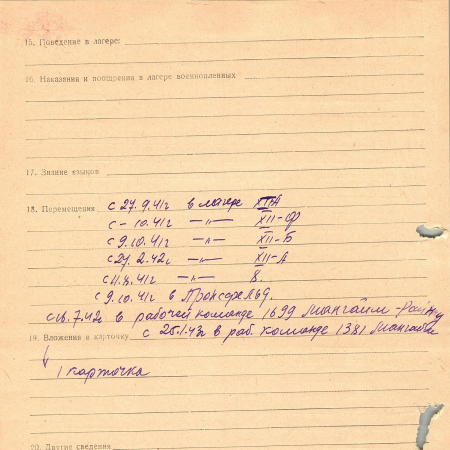 15. Поведение в лагере:
16. Наказания и поощрения в лагере военнопленных
17. Знание языков
18. Перемещения с 27.9.41г в лагере XII-А
с – 10.41г –"– XII-Ф
с 9.10.41г –"– XII-Б
с 27.2.42г –"– XII-А
41г –"–
с 9.10.41г в Пронсфельд.
7.42 в рабочей команде 1699 Мангайм-
19. Вложения в карточку с 25.1.43г в раб. команде 1381 Мангайм
1 карточка
20. Другие сведения